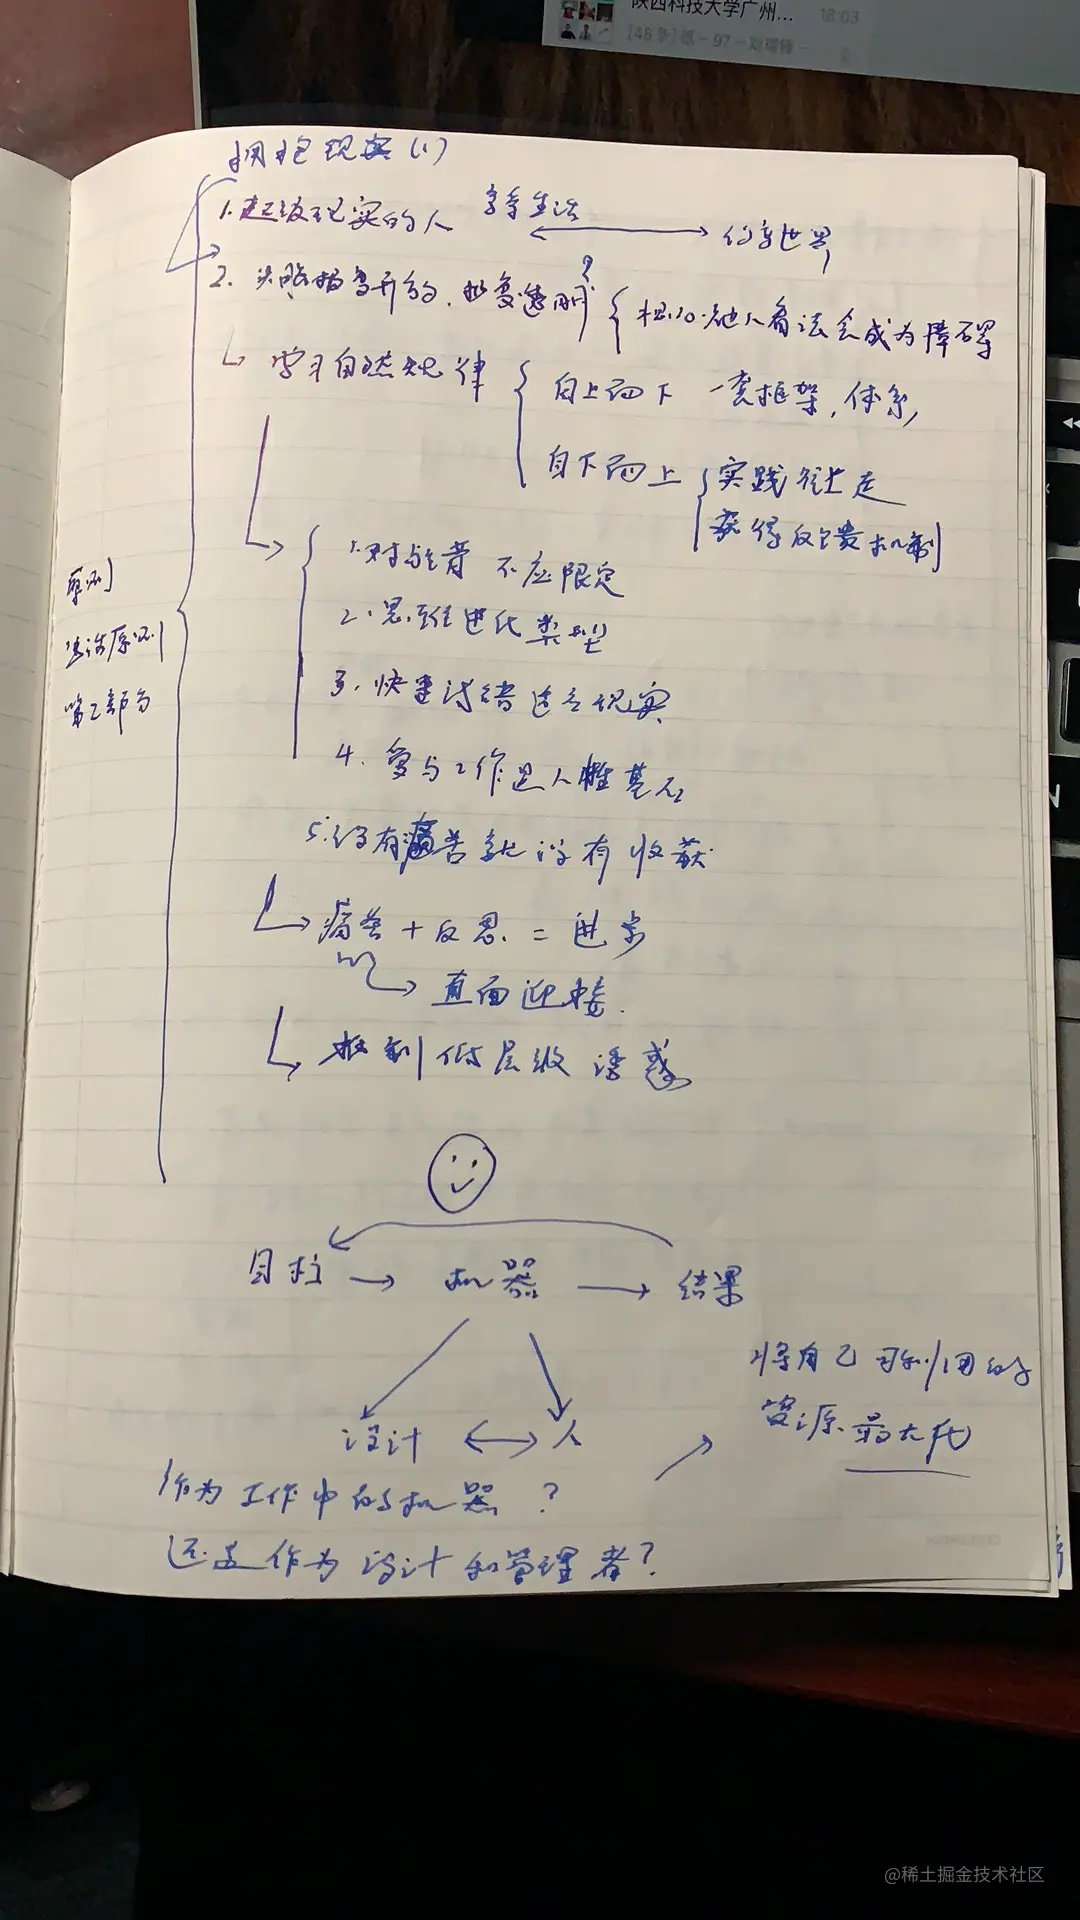 陕西科技大学广州... 18:03
[48条]
拥抱现实(1)
1.超级现实的人 享受生活 ⟷ 世界
2. 头脑极其开放,极度透明 ? 担心他人看法会成为障碍
学习自然规律
自上而下 一套框架,体系
自下而上 实践往上走
获得反馈机制
1.对与错 不应限定
2.思维进化类型
3.快速试错适应现实
原则
生活原则
第二部分
4.参与工作是人性基石
5.没有痛苦就没有收获
痛苦+反思=进步
直面迎接.
抵制低层级诱惑
目标 → 机器 → 结果
设计 ⟷ 人
将自己可利用的
资源最大化
作为工作中的机器?
还是作为设计和管理者?
@稀土掘金技术社区